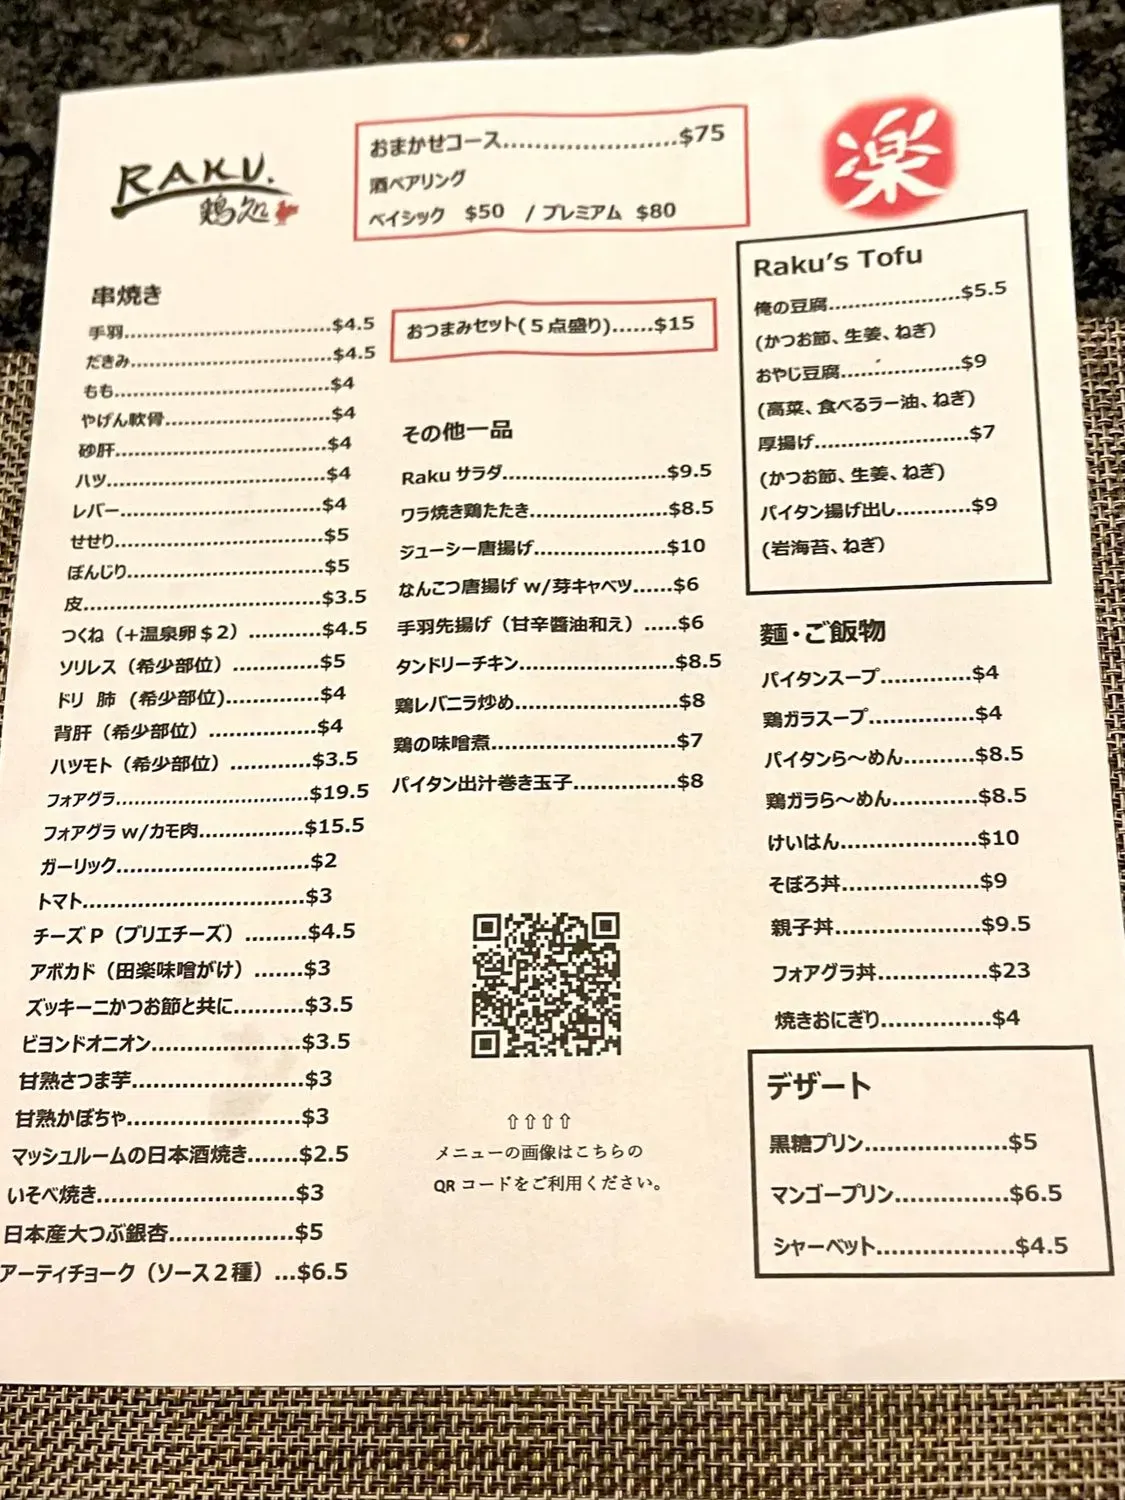 RAKU.
鶏処
おまかせコース.......................$75
酒ペアリング
ベイシック $50 / プレミアム $80
楽
串焼き
手羽.................................$4.5
だきみ................................$4.5
もも...................................$4
やげん軟骨...........................$4
砂肝...................................$4
ハツ...................................$4
レバー................................$4
せせり.................................$5
ぼんじり...............................$5
皮.....................................$3.5
つくね（+温泉卵＄2）...........$4.5
ソリレス（希少部位）.............$5
ドリ 肺 (希少部位)..............$4
背肝（希少部位）.................$4
ハツモト（希少部位）............$3.5
フォアグラ.............................$19.5
フォアグラ w/カモ肉................$15.5
ガーリック.............................$2
トマト..................................$3
チーズ P（ブリエチーズ）.........$4.5
アボカド（田楽味噌がけ）.......$3
ズッキーニかつお節と共に..........$3.5
ビヨンドオニオン......................$3.5
甘熟さつま芋.........................$3
甘熟かぼちゃ.........................$3
マッシュルームの日本酒焼き.......$2.5
いそべ焼き............................$3
日本産大つぶ銀杏..................$5
アーティチョーク（ソース２種）...$6.5
おつまみセット(５点盛り)......$15
その他一品
Raku サラダ........................$9.5
ワラ焼き鶏たたき....................$8.5
ジューシー唐揚げ...................$10
なんこつ唐揚げ w/芽キャベツ......$6
手羽先揚げ（甘辛醬油和え）.....$6
タンドリーチキン.......................$8.5
鶏レバニラ炒め........................$8
鶏の味噌煮...........................$7
パイタン出汁巻き玉子...............$8
⇧⇧⇧⇧
メニューの画像はこちらの
QR コードをご利用ください。
Raku's Tofu
俺の豆腐...................$5.5
(かつお節、生姜、ねぎ)
おやじ豆腐.................$9
(高菜、食べるラー油、ねぎ)
厚揚げ......................$7
(かつお節、生姜、ねぎ)
パイタン揚げ出し...........$9
(岩海苔、ねぎ)
麵・ご飯物
パイタンスープ.............$4
鶏ガラスープ...............$4
パイタンら～めん..........$8.5
鶏ガラら～めん............$8.5
けいはん....................$10
そぼろ丼....................$9
親子丼.....................$9.5
フォアグラ丼................$23
焼きおにぎり................$4
デザート
黒糖プリン....................$5
マンゴープリン................$6.5
シャーベット....................$4.5